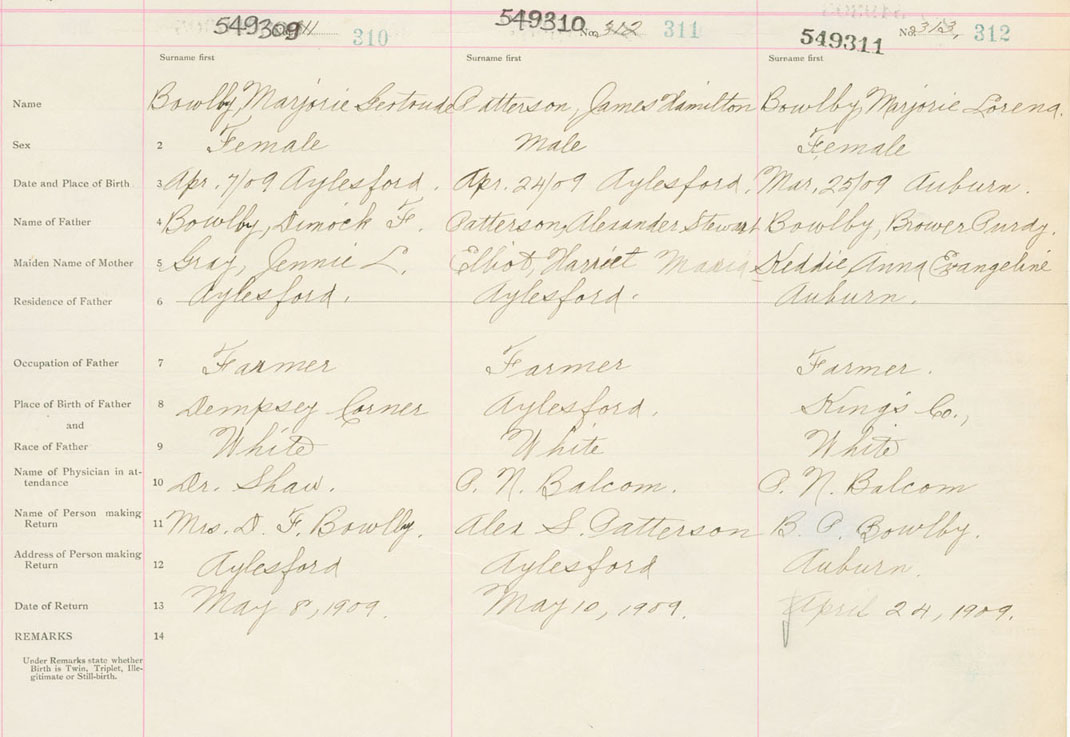 549309 311 310 549310 No. 312 311 549311 No. 313, 312
Surname first Surname first Surname first
Name Bowlby, Marjorie Gertrude Patterson, James Hamilton Bowlby, Marjorie Lorena.
Sex 2 Female Male Female
Date and Place of Birth 3 Apr. 7/09 Aylesford. Apr. 24/09 Aylesford. Mar. 25/09 Auburn.
Name of Father 4 Bowlby, Dimock F. Patterson, Alexander Stewart Bowlby, Brower Purdy.
Maiden Name of Mother 5 Gray, Jennie L. Elliot, Harriet Maria Keddie, Anna Evangeline
Residence of Father 6 Aylesford. Aylesford. Auburn.
Occupation of Father 7 Farmer Farmer Farmer.
Place of Birth of Father 8 Dempsey Corner Aylesford. King's Co.,
and
Race of Father 9 White White White
Name of Physician in at-
tendance 10 Dr. Shaw. P. N. Balcom. P. N. Balcom
Name of Person making
Return 11 Mrs. D. F. Bowlby. Alex S. Patterson B. P. Bowlby.
Address of Person making
Return 12 Aylesford Aylesford Auburn.
Date of Return 13 May 8, 1909. May 10, 1909. April 24, 1909.
REMARKS 14
Under Remarks state whether
Birth is Twin, Triplet, Ille-
gitimate or Still-birth.